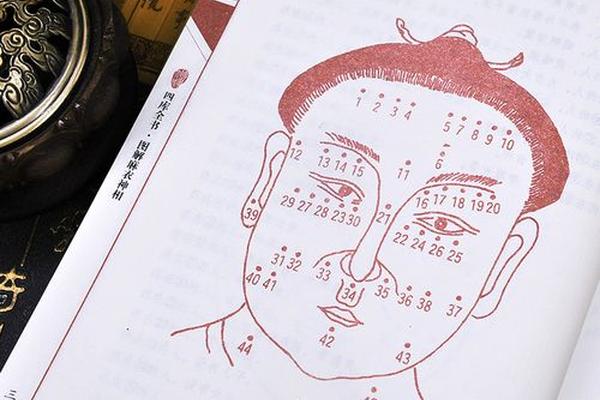 四库全书·图解麻衣神相
1 2 3 4
5 7 8 9 10
6
11
12
13 14 15
16 17 18 19 20
21
29 27 28 23 30
22 24 26 25
39
31 32
33
34
35
36 38
37
40 41
42
43
44
三